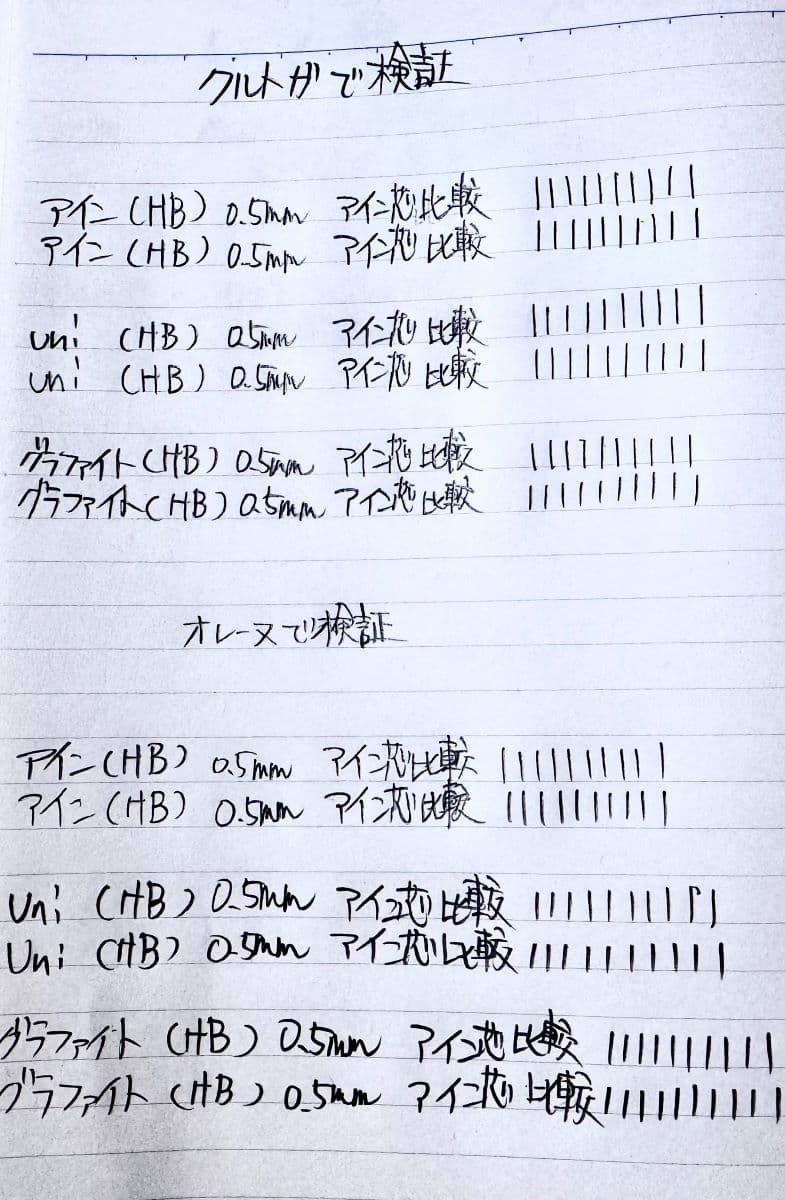 クルトガで検証
アイン(HB) 0.5mm アイン芯比較
アイン(HB) 0.5mm アイン芯比較
uni (HB) 0.5mm アイン芯比較
uni (HB) 0.5mm アイン芯比較
グラファイト(HB) 0.5mm アイン芯比較
グラファイト(HB) 0.5mm アイン芯比較
オレーヌで検証
アイン(HB) 0.5mm アイン芯比較
アイン(HB) 0.5mm アイン芯比較
Uni (HB) 0.5mm アイン芯比較
Uni (HB) 0.5mm アイン芯比較
グラファイト (HB) 0.5mm アイン芯比較
グラファイト (HB) 0.5mm アイン芯比較